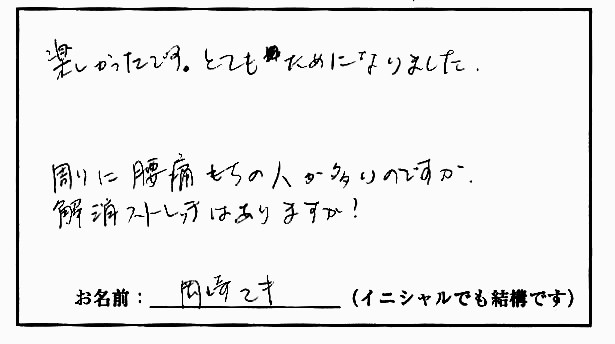 楽しかったです。とても ためになりました.
周りに腰痛もちの人が多いのですが.
解消ストレッチはありますか!
お名前：岡崎マキ（イニシャルでも結構です）